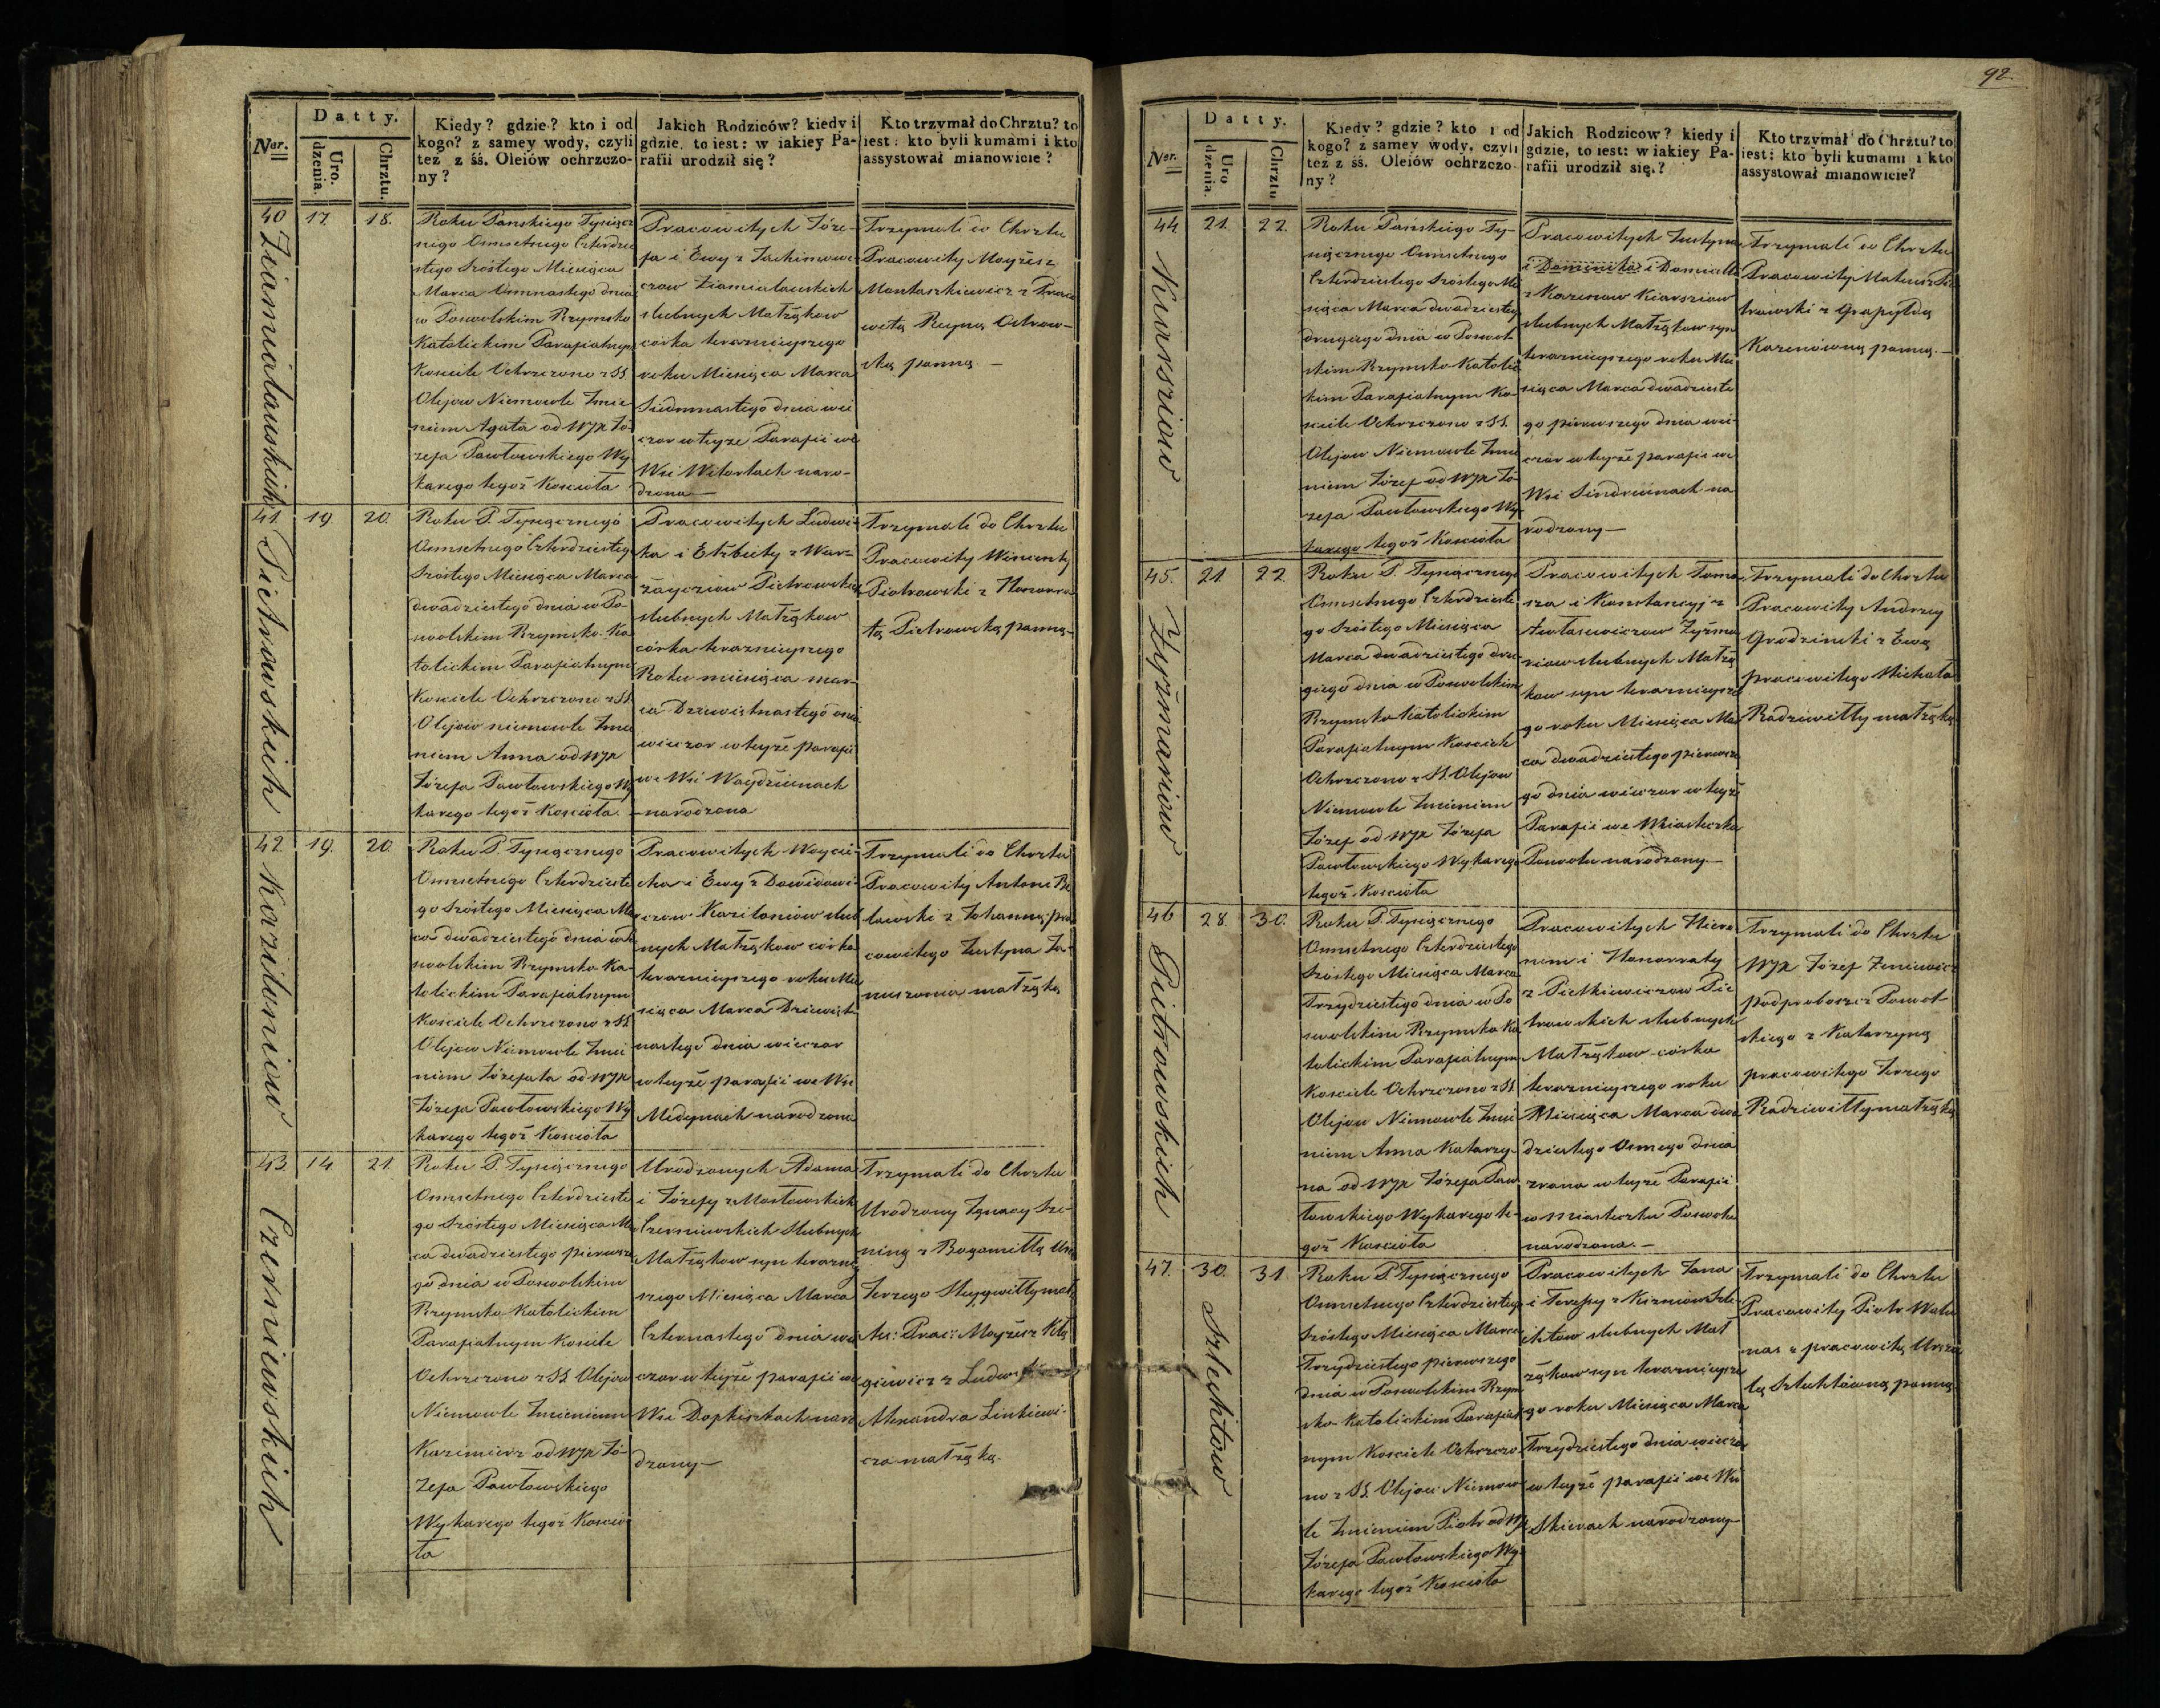 92
Datty.
Nar.
Uro.
dzenia.
Chrztu.
Kiedy? gdzie? kto i od
kogo? z samey wody, czyli
też z śś. Oleiów ochrzczo-
ny?
Jakich Rodziców? kiedy i
gdzie, to iest: w iakiey Pa-
rafii urodził się?
Kto trzymał do Chrztu? to
iest: kto byli kumami i kto
assystował mianowicie?
40
17.
18.
Roku Panskiego Tysiącz
nego Osmsetnego Czterdzie
stego Szóstego Miesiąca
Marca Osmnastego dnia
w Poswolskim Rzymsko
Katolickim Parafialnym
Kosciele Ochrzczono z SS.
Olejow Niemowle Imie-
niem Agata od WJX Jó-
zefa Pawłowskiego Wy
karego tegoż Kościoła
Pracowitych Józe-
fa i Ewy z Jachimowi-
czow
slubnych Małżąkow
córka terazniejszego
roku Miesiąca Marca
Siedmnastego dnia wie
czor w tejże Parafii we
Wsi Witartach naro-
dzona
Trzymali do Chrztu
Pracowity Moyżesz
Montaszkiewicz z Praco
wetą Reyną Ostrow-
ską panną. —
41.
Pietrowskich
19
20.
Roku P. Tysiącznego
Osmsetnego Czterdziestego
Szóstego Miesiąca Marca
dwadziestego dnia w Po-
swolskim Rzymsko-Ka
tolickim Parafialnym
Kosciele Ochrzczono z SS
Olejow niemowle Imie
niem Anna od WJX
Józefa Pawłowskiego Wy
karego tegoż Kościoła.
Pracowitych Ludwi-
ka i Elżbiety z War-
Pietrowskich
slubnych Małżąkow
córka terazniejszego
Roku miesiąca mar-
ca Dziewiętnastego dnia
wieczor w tejże parafii
we Wsi Woydziunach
narodzona
Trzymali do Chrztu
Pracowity Wincenty
Piotrowski z Honorra
tą Pietrowską panną-
42
Kaziloniow
19.
20.
Roku P. Tysiącznego
Osmsetnego Czterdzieste
go Szóstego Miesiąca Mar
ca dwadziestego dnia w Po
swolskim Rzymsko Ka-
tolickim Parafialnym
Kosciele Ochrzczono z SS
Olejow Niemowle Imie
niem Józefata od WJX
Józefa Pawłowskiego Wy
karego tegoż Kościoła
Pracowitych Woycie-
cha i Ewy z Dawidowi-
czow Kaziloniow slub
nych Małżąkow córka
terazniejszego roku Mie
siąca Marca Dziewięt-
nastego dnia wieczor
w tejże parafii we Wsi
Medynach narodzona
Trzymali do Chrztu
Pracowity Antoni Bi
lawski z Johanną pra
cowitego Justyna Ja-
nuszonia małżąką
43
Czerniewskich
14.
21.
Roku P Tysiącznego
Osmsetnego Czterdzieste
go Szóstego Miesiąca Mar
ca dwadziestego pierwsze
go dnia w Poswolskim
Rzymsko-Katolickim
Parafialnym Kosciele
Ochrzczono z SS. Olejow
Niemowle Imieniem
Kazimierz od WJX Jó-
zefa Pawłowskiego
Wykarego tegoż Koscio
ła
Urodzonych Adama
i Józefy z Masłowskich
Czerniewskich Slubnych
Małżąkow syn terazniey
szego Miesiąca Marca
Czternastego dnia wie
czor w tejże parafii we
Wsi Dapkiszkach naro
dzony—
Trzymali do Chrztu
Urodzony Ignacy
z Bogomiłłą
Jerzego
As: Prac: Moyżesz
z
Alexandra Linkiewi-
cza małżąką.
Datty.
Nar.
Uro
dzenia.
Chrztu
Kiedy? gdzie? kto i od
kogo? z samey wody, czyli
też z śś. Oleiów ochrzczo-
ny?
Jakich Rodziców? kiedy i
gdzie, to iest: w iakiey Pa-
rafii urodził się?
Kto trzymał do Chrztu? to
iest: kto byli kumami i kto
assystował mianowicie?
44
Kiarsziow
21.
22.
Roku Pańskiego Ty-
siącznego Osmsetnego
Czterdziestego Szóstego Mie
siąca Marca dwadziestego
drugiego dnia w Poswol
skim Rzymsko-Katolic
kim Parafialnym Ko-
sciele Ochrzczono z SS.
Olejow Niemowle Imie
niem Józef od WJX Jó-
zefa Pawłowskiego Wy
karego tegoż Kościoła
Pracowitych Justyna
i Dominika i Domicelli
z Kazenow Kiarsziow
slubnych Małżąkow syn
terazniejszego roku Mie
siąca Marca dwadzieste
go pierwszego dnia wie
czor w tejże parafii we
Wsi Sindriunach na
rodzony—
Trzymali do Chrztu
Pracowity Mateusz Pie
trowski z Grapyldą
Kazenówną panną.—
45.
Zyżmariow
21.
22
Roku P. Tysiącznego
Osmsetnego Czterdzieste
go Szóstego Miesiąca
Marca dwadziestego dru
giego dnia w Poswolskim
Rzymsko Katolickim
Parafialnym Kosciele
Ochrzczono z SS Olejow
Niemowle Imieniem
Józef od WJX Józefa
Pawłowskiego Wykarego
tegoż Kościoła
Pracowitych Toma
sza i Konstancyj z
Zyżma
riow slubnych Małżą
kow syn terazniejsze
go roku Miesiąca Mar
ca dwadziestego pierwsze
go dnia wieczor w tejże
Parafii we Miasteczku
Poswolu narodzony.—
Trzymali do Chrztu
Pracowity Andrzey
Grodzincki z Ewą
pracowitego Michała
Radziwiłły małżąką
46
Pietrowskich
28.
30.
Roku P. Tysiącznego
Osmsetnego Czterdziestego
Szóstego Miesiąca Marca
Trzydziestego dnia w Po
swolskim Rzymsko Ka
tolickim Parafialnym
Kosciele Ochrzczono z SS
Olejow Niemowle Imie
niem Anna Katarzy-
na od WJX Józefa Paw
łowskiego Wykarego te-
goż Kościoła
Pracowitych Hiero
nim i Honorraty
z Pietkiewiczow Pie
trowskich slubnych
Małżąkow córka
terazniejszego roku
Miesiąca Marca dwa
dziestego Osmego dnia
zrana w tejże Parafii
w miasteczku Poswolu
narodzona.—
Trzymali do Chrztu
WJX Józef
podproboszcz Poswol
skiego z Katarzyną
pracowitego Jerzego
Radziwiłły małżąką
47.
Szlechtow
30.
31.
Roku P. Tysiącznego
Osmsetnego Czterdziestego
Szóstego Miesiąca Marca
Trzydziestego pierwszego
dnia w Poswolskim Rzym
sko Katolickim Parafial
nym Kosciele Ochrzczo
no z SS. Olejow Niemow
le Imieniem Piotr od WJX
Józefa Pawłowskiego Wy-
karego tegoż Kościoła
Pracowitych Jana
i Teressy z Kizniow Szle-
chtow slubnych Mał
żąkow syn terazniejsze
go roku Miesiąca Marca
Trzydziestego dnia wieczor
w tejże parafii we Wsi
Skierach narodzony
Trzymali do Chrztu
Pracowity Piotr Walu
nas z pracowitą Urszu
lą Szlechtówną panną